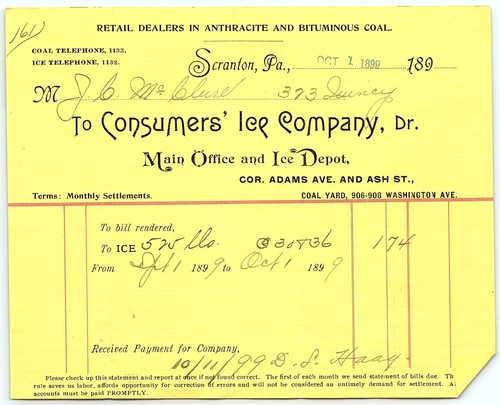 161
RETAIL DEALERS IN ANTHRACITE AND BITUMINOUS COAL.
COAL TELEPHONE, 1133.
ICE TELEPHONE, 1132.
Scranton, Pa., OCT 1 1899 189
M J. C. McClure 373 Quincy
To Consumers' Ice Company, Dr.
Main Office and Ice Depot,
COR. ADAMS AVE. AND ASH ST.,
Terms: Monthly Settlements. COAL YARD, 906-908 WASHINGTON AVE.
To bill rendered,
To ICE 525 lbs. @ 30 & 36 174
From Sept 1 1899 to Oct 1 1899
Received Payment for Company,
10/11/99 D. S. Haag
Please check up this statement and report at once if not found correct. The first of each month we send statement of bills due. Th
rule saves us labor, affords opportunity for correction of errors and will not be considered an untimely demand for settlement. A
accounts must be paid PROMPTLY.